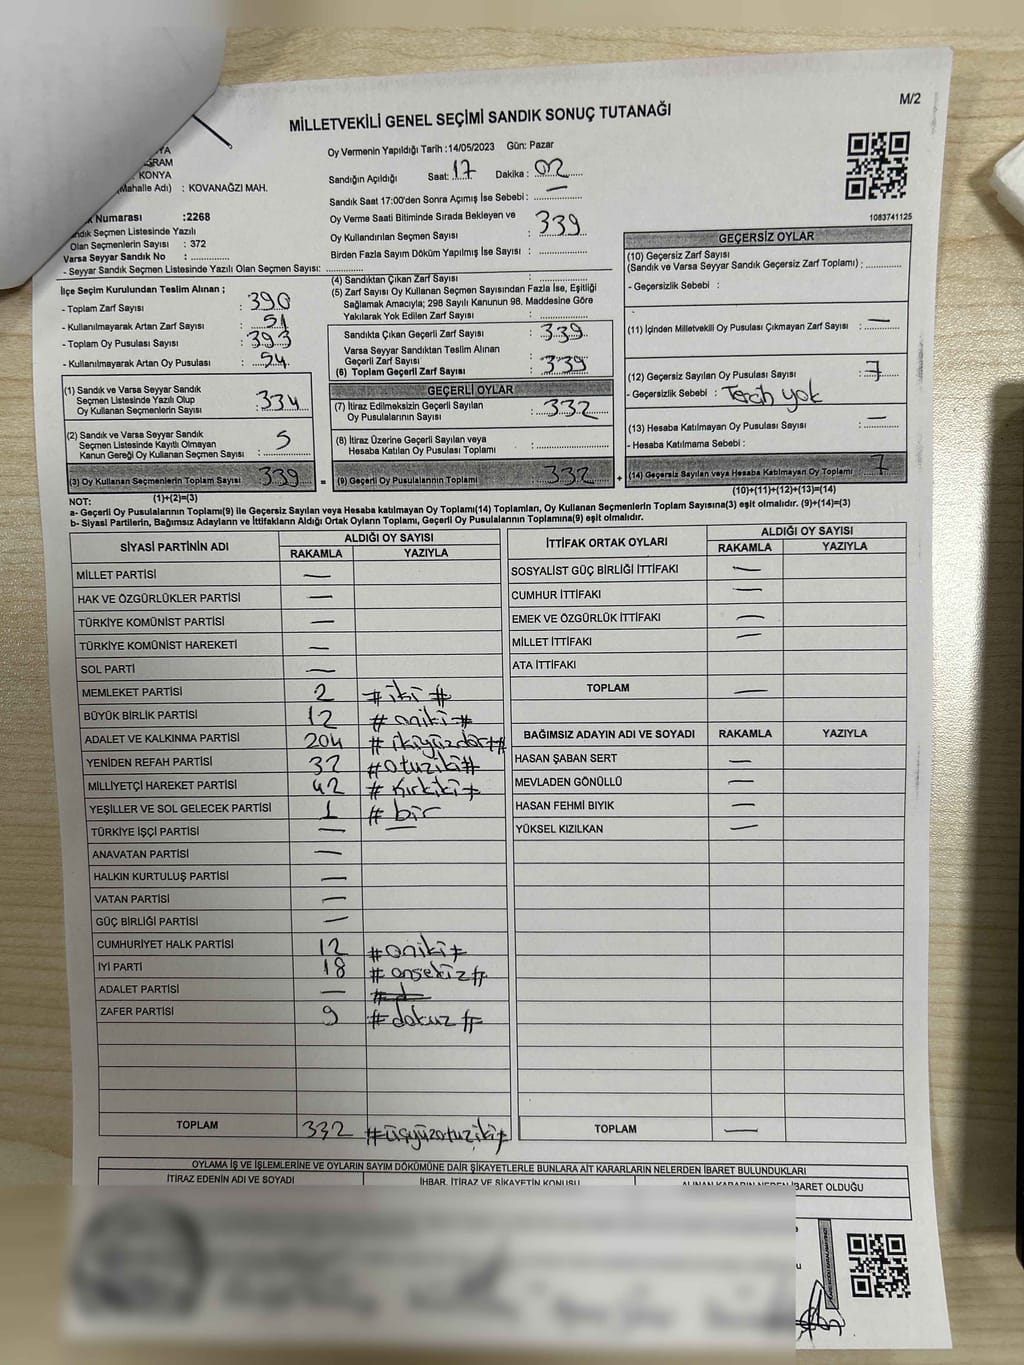 M/2
MİLLETVEKİLİ GENEL SEÇİMİ SANDIK SONUÇ TUTANAĞI
Oy Vermenin Yapıldığı Tarih :14/05/2023 Gün: Pazar
KONYA
(Mahalle Adı) : KOVANAĞZI MAH.
Sandığın Açıldığı Saat: 17 Dakika : 02
Sandık Saat 17:00'den Sonra Açılmış İse Sebebi : —
Numarası :2268
Sandık Seçmen Listesinde Yazılı
Olan Seçmenlerin Sayısı : 372
Varsa Seyyar Sandık No :
- Seyyar Sandık Seçmen Listesinde Yazılı Olan Seçmen Sayısı:
Oy Verme Saati Bitiminde Sırada Bekleyen ve
Oy Kullandırılan Seçmen Sayısı : 339
Birden Fazla Sayım Döküm Yapılmış İse Sayısı :
1083741125
İlçe Seçim Kurulundan Teslim Alınan ;
- Toplam Zarf Sayısı : 390
- Kullanılmayarak Artan Zarf Sayısı : 51
- Toplam Oy Pusulası Sayısı : 393
- Kullanılmayarak Artan Oy Pusulası : 54
(1) Sandık ve Varsa Seyyar Sandık
Seçmen Listesinde Yazılı Olup
Oy Kullanan Seçmenlerin Sayısı : 334
(2) Sandık ve Varsa Seyyar Sandık
Seçmen Listesinde Kayıtlı Olmayan
Kanun Gereği Oy Kullanan Seçmen Sayısı : 5
(3) Oy Kullanan Seçmenlerin Toplam Sayısı : 339 =
(1)+(2)=(3)
(4) Sandıktan Çıkan Zarf Sayısı :
(5) Zarf Sayısı Oy Kullanan Seçmen Sayısından Fazla İse, Eşitliği
Sağlamak Amacıyla; 298 Sayılı Kanunun 98. Maddesine Göre
Yakılarak Yok Edilen Zarf Sayısı :
Sandıkta Çıkan Geçerli Zarf Sayısı : 339
Varsa Seyyar Sandıktan Teslim Alınan
Geçerli Zarf Sayısı
(6) Toplam Geçerli Zarf Sayısı : 339
GEÇERLİ OYLAR
(7) İtiraz Edilmeksizin Geçerli Sayılan
Oy Pusulalarının Sayısı : 332
(8) İtiraz Üzerine Geçerli Sayılan veya
Hesaba Katılan Oy Pusulası Toplamı :
(9) Geçerli Oy Pusulalarının Toplamı : 332 +
GEÇERSİZ OYLAR
(10) Geçersiz Zarf Sayısı
(Sandık ve Varsa Seyyar Sandık Geçersiz Zarf Toplamı) :
- Geçersizlik Sebebi :
(11) İçinden Milletvekili Oy Pusulası Çıkmayan Zarf Sayısı : —
(12) Geçersiz Sayılan Oy Pusulası Sayısı : 7
- Geçersizlik Sebebi : Tercih yok
(13) Hesaba Katılmayan Oy Pusulası Sayısı : —
- Hesaba Katılmama Sebebi :
(14) Geçersiz Sayılan veya Hesaba Katılmayan Oy Toplamı : 7
(10)+(11)+(12)+(13)=(14)
NOT:
a- Geçerli Oy Pusulalarının Toplamı(9) ile Geçersiz Sayılan veya Hesaba Katılmayan Oy Toplamı(14) Toplamları, Oy Kullanan Seçmenlerin Toplam Sayısına(3) eşit olmalıdır. (9)+(14)=(3)
b- Siyasi Partilerin, Bağımsız Adayların ve İttifakların Aldığı Ortak Oyların Toplamı, Geçerli Oy Pusulalarının Toplamına(9) eşit olmalıdır.
SİYASİ PARTİNİN ADI ALDIĞI OY SAYISI
RAKAMLA YAZIYLA
MİLLET PARTİSİ —
HAK VE ÖZGÜRLÜKLER PARTİSİ —
TÜRKİYE KOMÜNİST PARTİSİ —
TÜRKİYE KOMÜNİST HAREKETİ —
SOL PARTİ —
MEMLEKET PARTİSİ 2 #iki#
BÜYÜK BİRLİK PARTİSİ 12 #oniki#
ADALET VE KALKINMA PARTİSİ 204 #ikiyüzdört#
YENİDEN REFAH PARTİSİ 32 #otuziki#
MİLLİYETÇİ HAREKET PARTİSİ 42 #kırkiki#
YEŞİLLER VE SOL GELECEK PARTİSİ 1 #bir
TÜRKİYE İŞÇİ PARTİSİ — —
ANAVATAN PARTİSİ —
HALKIN KURTULUŞ PARTİSİ —
VATAN PARTİSİ —
GÜÇ BİRLİĞİ PARTİSİ —
CUMHURİYET HALK PARTİSİ 12 #oniki#
İYİ PARTİ 18 #onsekiz#
ADALET PARTİSİ —
ZAFER PARTİSİ 9 #dokuz#
TOPLAM 332 #üçyüzotuziki#
İTTİFAK ORTAK OYLARI ALDIĞI OY SAYISI
RAKAMLA YAZIYLA
SOSYALİST GÜÇ BİRLİĞİ İTTİFAKI —
CUMHUR İTTİFAKI —
EMEK VE ÖZGÜRLÜK İTTİFAKI —
MİLLET İTTİFAKI —
ATA İTTİFAKI
TOPLAM —
BAĞIMSIZ ADAYIN ADI VE SOYADI RAKAMLA YAZIYLA
HASAN ŞABAN SERT —
MEVLADEN GÖNÜLLÜ —
HASAN FEHMİ BIYIK —
YÜKSEL KIZILKAN —
TOPLAM —
OYLAMA İŞ VE İŞLEMLERİNE VE OYLARIN SAYIM DÖKÜMÜNE DAİR ŞİKAYETLERLE BUNLARA AİT KARARLARIN NELERDEN İBARET BULUNDUKLARI
İTİRAZ EDENİN ADI VE SOYADI İHBAR, İTİRAZ VE ŞİKAYETİN KONUSU ALINAN KARARIN NEDEN İBARET OLDUĞU